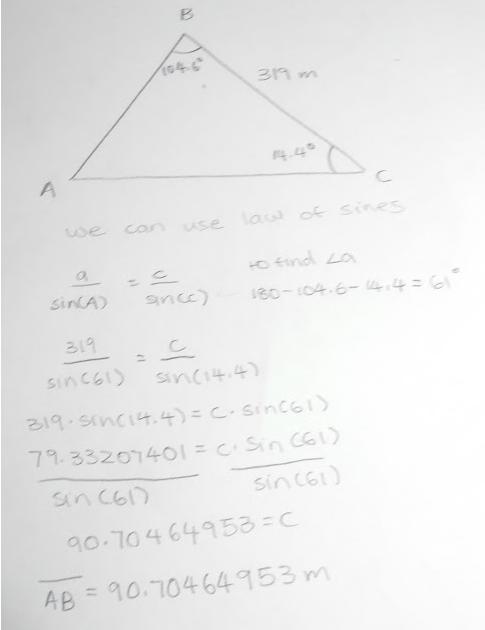 B
104.6°
319 m
14.4°
A
C
we can use law of sines
a/sin(A) = c/sin(c) to find ∠a
180-104.6-14.4 = 61°
319/sin(61) = c/sin(14.4)
319·sin(14.4) = c·sin(61)
79.33207401/sin(61) = c·sin(61)/sin(61)
90.70464953 = C
AB = 90.70464953 m